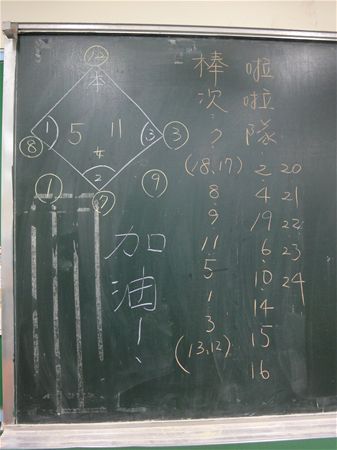 12
本
1
5
11
3
3
8
2
1
9
加油!
棒次?
(18,17)
8
9
11
5
1
3
(13,12)
啦啦隊
2 20
4 21
19 22
6 23
10 24
14
15
16